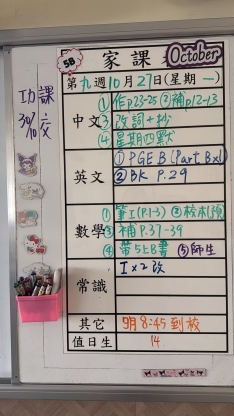 5B
家課
October
第九週10月27日(星期一)
功課
30/10交
中文
①作p23-25 ②補p12-13
③改詞+抄
④星期四默
英文
①PGE B (Part B×1)
②BK P.29
數學
①筆I(P.1-3) ②校本(預)
③補P.37-39
④帶5上B書 ⑤師生
常識
I×2改
其它
明8:45到校
值日生
14